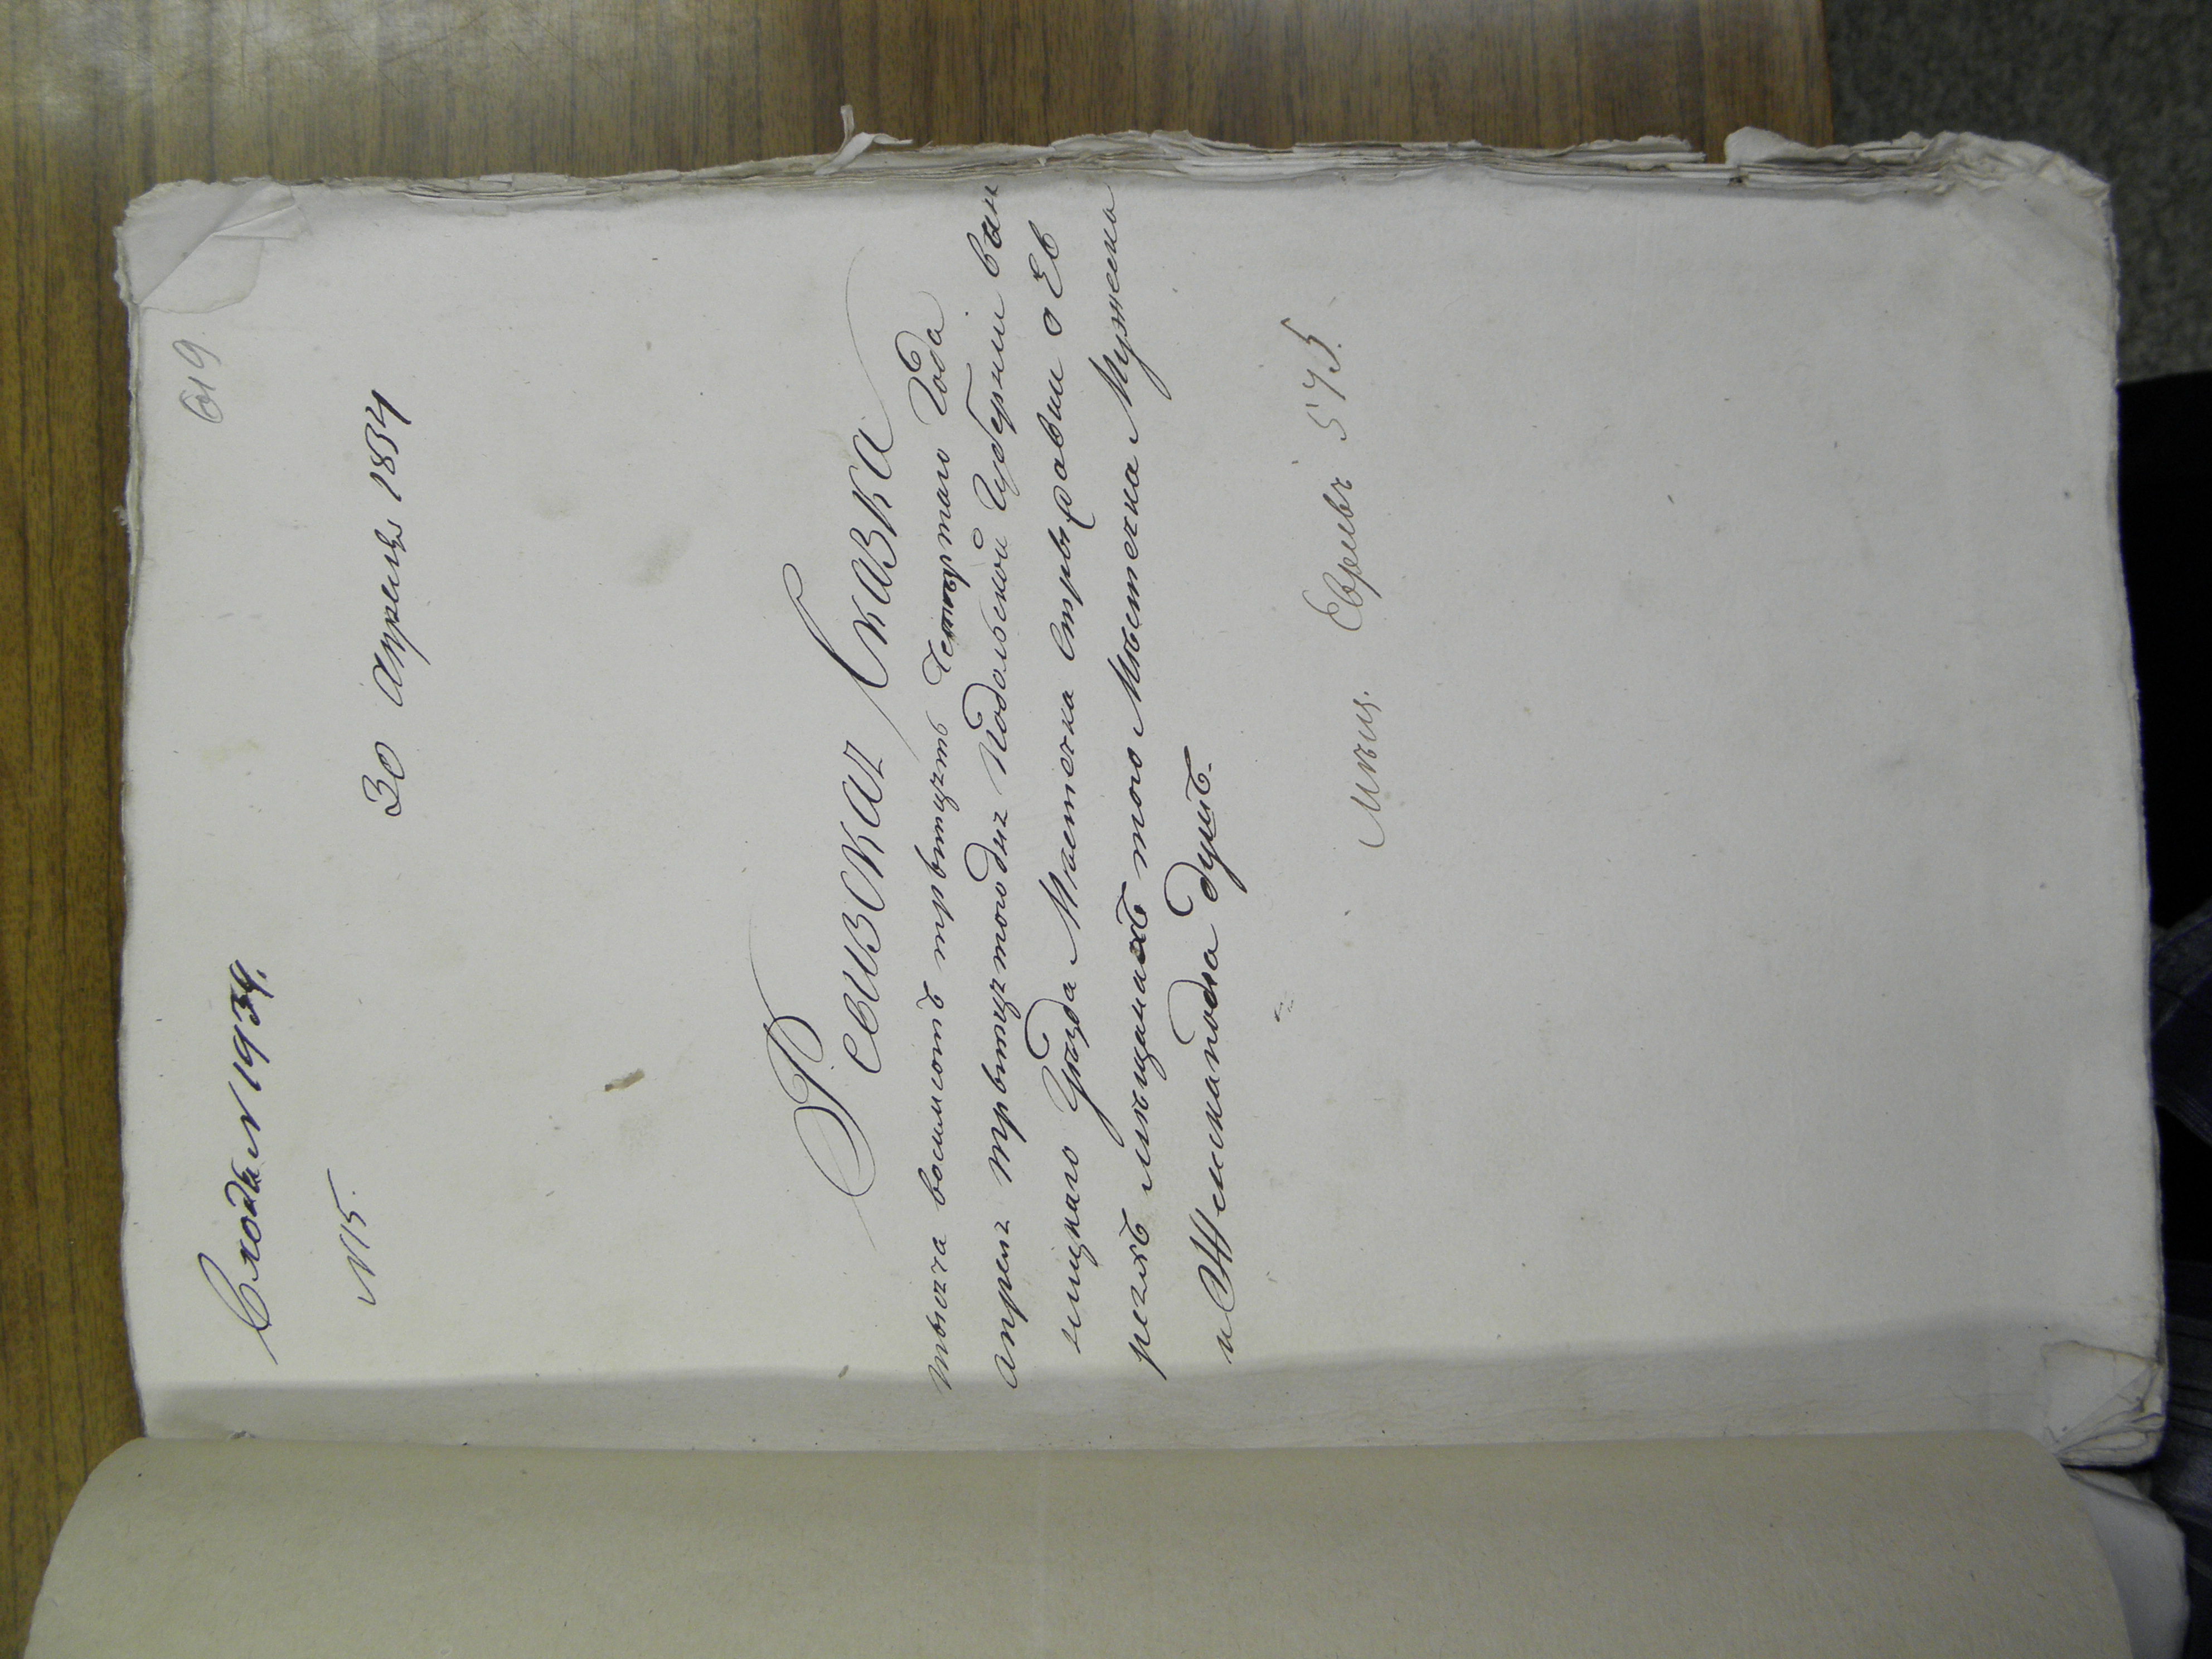 619
Входя. N 1934.
30 Апреля 1834
N 15.
Ревизская Сказка
тысяча восемсотъ тритцать Четвертаго Года
апреля тритцятого дня Подольской Губернии Вин
ницкаго Уѣзда Мѣстечка Стрыжавки о Ев
реяхъ мѣщанахъ того Мѣстечка Мужеска
и Женска пола душъ.
Мѣщ. Евреевъ 575.